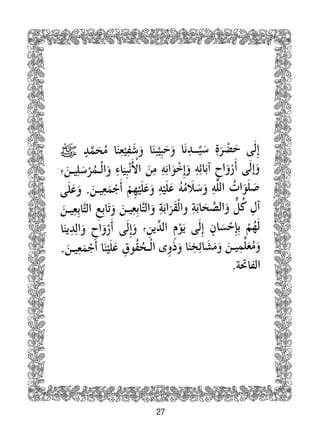 إِلَى حَضْرَةِ سَيِّدِنَا وَحَبِيْبِنَا وَشَفِيْعِنَا مُحَمَّدٍ ﷺ
وَإِلَى أَرْوَاحِ آبَائِهِ وَإِخْوَانِهِ مِنَ الْأَنْبِيَاءِ وَالْمُرْسَلِيْنَ،
صَلَوَاتُ اللَّهِ وَسَلَامُهُ عَلَيْهِ وَعَلَيْهِمْ أَجْمَعِيْنَ. وَعَلَى
آلِ كُلٍّ وَالصَّحَابَةِ وَالْقَرَابَةِ وَالتَّابِعِيْنَ وَتَابِعِ التَّابِعِيْنَ
لَهُمْ بِإِحْسَانٍ إِلَى يَوْمِ الدِّينِ، وَإِلَى أَرْوَاحِ وَالِدِيْنَا
وَمُعَلِّمِيْنَ وَمَشَائِخِنَا وَذَوِى الْحُقُوقِ عَلَيْنَا أَجْمَعِيْنَ.
الفاتحة.
27